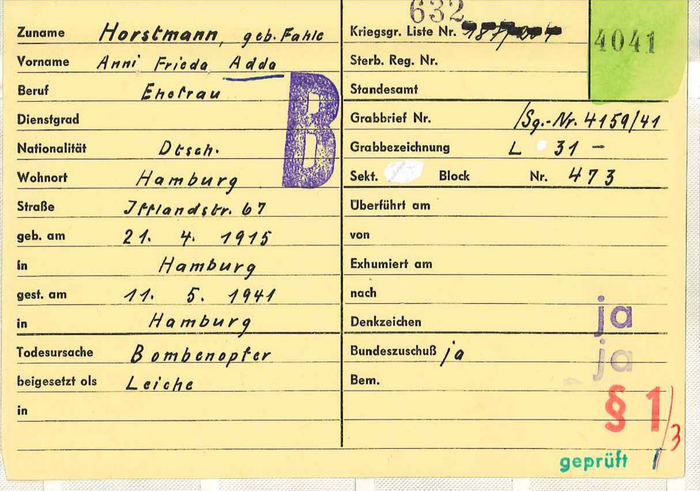 Zuname Horstmann, geb. Fahle
Vorname Anni Frieda Adda
Beruf Ehefrau
Dienstgrad
Nationalität Dtsch.
Wohnort Hamburg
Straße Ifflandstr. 67
geb. am 21. 4. 1915
in Hamburg
gest. am 11. 5. 1941
in Hamburg
Todesursache Bombenopfer
beigesetzt als Leiche
in
B
632
Kriegsgr. Liste Nr.
4041
Sterb. Reg. Nr.
Standesamt
Grabbrief Nr. /Sg.-Nr. 4159/41
Grabbezeichnung L 31 -
Sekt. Block Nr. 473
Überführt am
von
Exhumiert am
nach
Denkzeichen ja
Bundeszuschuß ja ja
Bem.
§ 1/3
geprüft